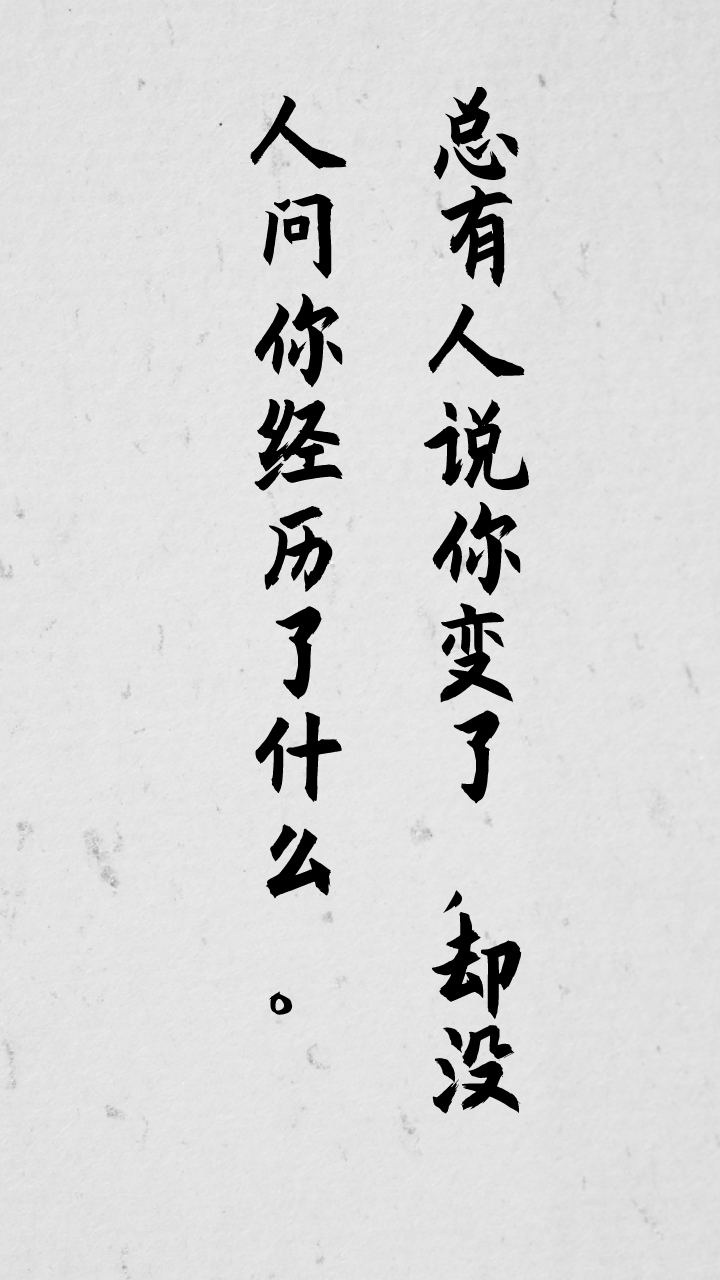 总有人说你变了，却没
人问你经历了什么。